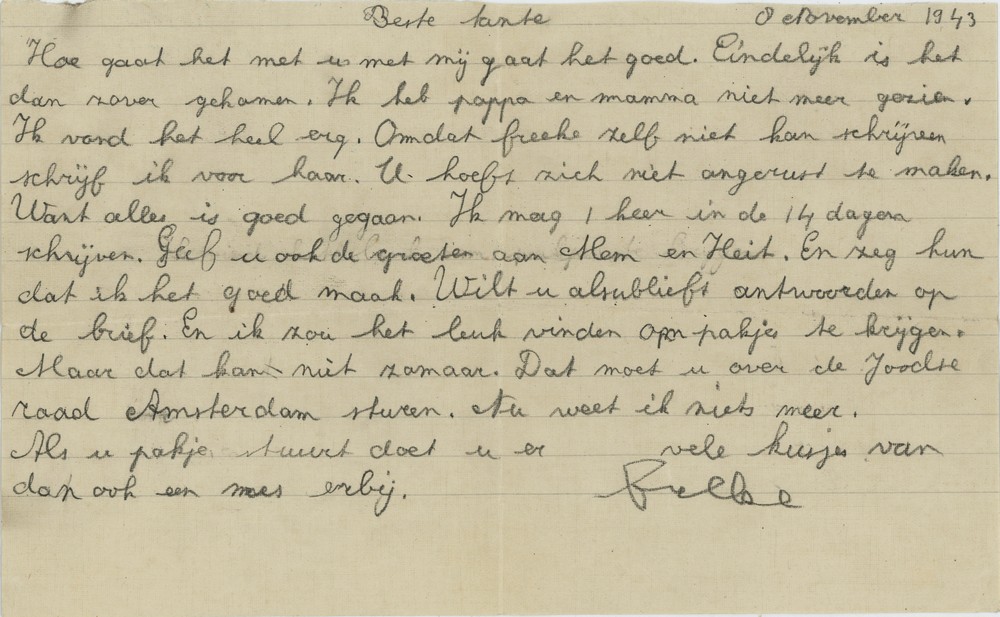 Beste tante 8 November 1943
Hoe gaat het met u met mij gaat het goed. Eindelijk is het
dan zover gekomen. Ik heb pappa en mamma niet meer gezien.
Ik vond het heel erg. Omdat freeke zelf niet kan schrijven
schrijf ik voor haar. U hoeft zich niet angerust te maken.
Want alles is goed gegaan. Ik mag 1 keer in de 14 dagen
schrijven. Geef u ook de groeten aan Mem en Heit. En zeg hun
dat ik het goed maak. Wilt u alsublieft antwoorden op
de brief. En ik zou het leuk vinden opn pakje te krijgen.
Maar dat kan niet zamaar. Dat moet u over de Joodse
raad Amsterdam sturen. Nu weet ik niets meer.
Als u pakje stuurt doet u er vele kusjes van
dan ook een mes erbij.